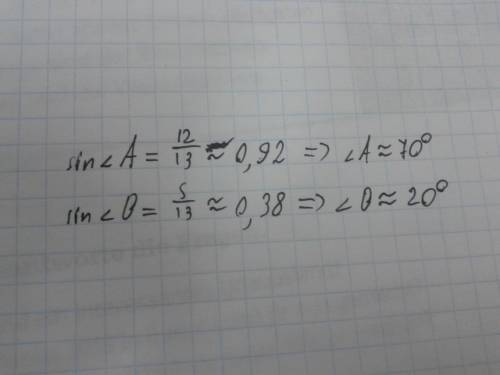 sin∠A = 12/13 ≈ 0,92 => ∠A ≈ 70°
sin∠B = 5/13 ≈ 0,38 => ∠B ≈ 20°